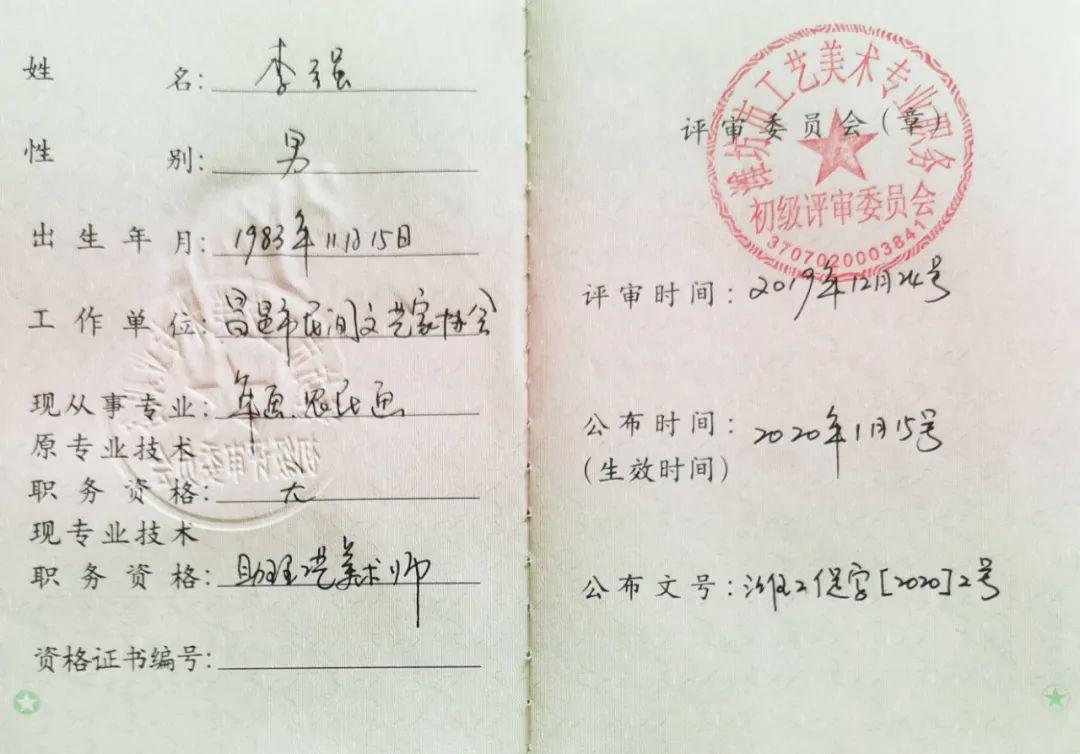 姓名：李强
性别：男
出生年月：1983年11月15日
工作单位：昌邑市民间文艺家协会
现从事专业：年画.农民画
原专业技术
职务资格：无
现专业技术
职务资格：助理工艺美术师
资格证书编号：
潍坊市工艺美术专业职务
评审委员会（章）
初级评审委员会
3707020003841
评审时间：2019年12月24号
公布时间：2020年1月15号
(生效时间)
公布文号：潍工促字[2020]2号
初级评审委员会